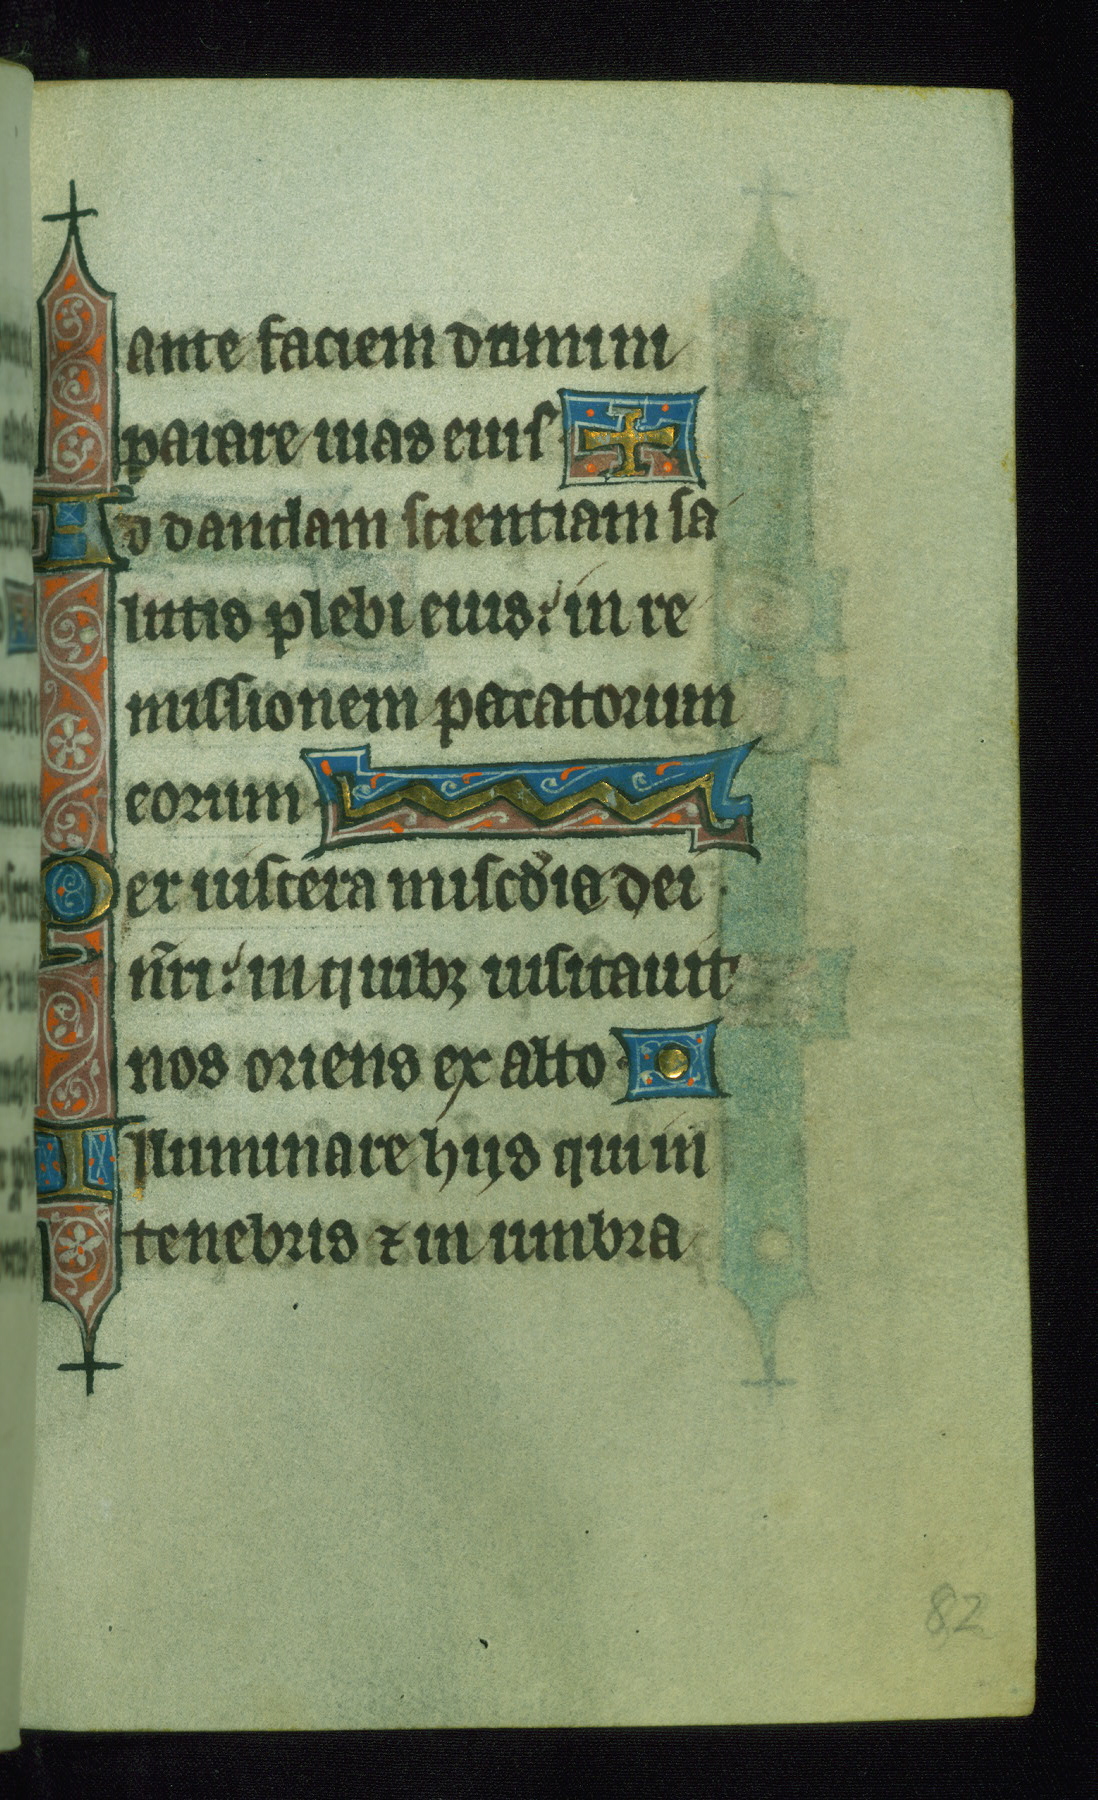 ante faciem domini
parare uias eius
Ad dandam scientiam sa
lutis plebi eius: in re
missionem peccatorum
eorum
Per uiscera miscd̾ie dei
nr̃i: in quibꝫ uisitauit
nos oriens ex alto
Illuminare hijs qui in
tenebris ⁊ in umbra
82